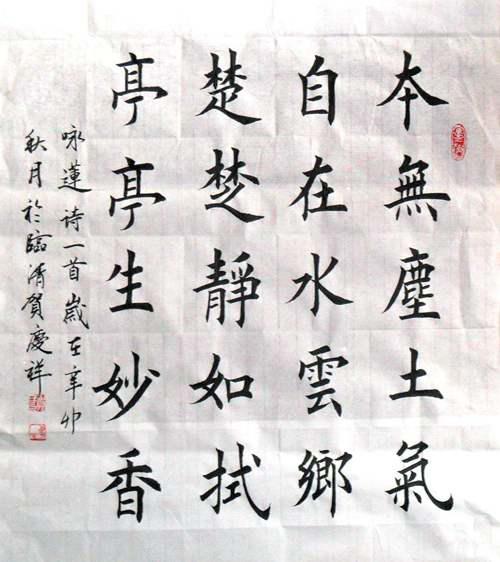 本無塵土氣
自在水雲鄉
楚楚静如拭
亭亭生妙香
咏蓮诗一首歲在辛卯
秋月於臨清賀慶祥